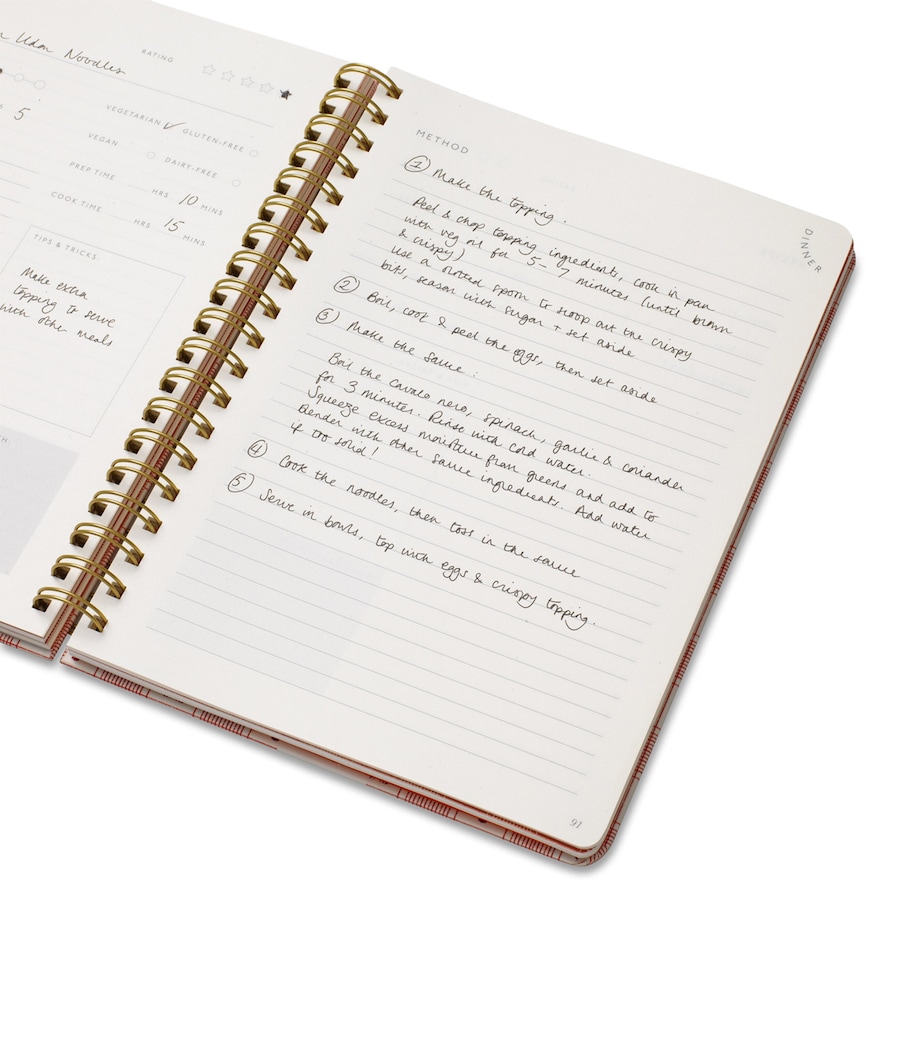 Udon Noodles
RATING
5
VEGETARIAN ✓ GLUTEN-FREE
VEGAN DAIRY-FREE
PREP TIME HRS 10 MINS
COOK TIME HRS 15 MINS
TIPS & TRICKS
Make extra
topping to serve
with other meals
METHOD
① Make the topping.
Peel & chop topping ingredients, cook in pan
with veg oil for 5-7 minutes (until brown
& crispy)
Use a slotted spoon to scoop out the crispy
bits, season with sugar + set aside
② Boil, cool & peel the eggs, then set aside
③ Make the sauce:
Boil the cavalo nero, spinach, garlic & coriander
for 3 minutes. Rinse with cold water.
Squeeze excess moisture from greens and add to
blender with other sauce ingredients. Add water
if too solid!
④ Cook the noodles, then toss in the sauce
⑤ Serve in bowls, top with eggs & crispy topping.
DINNER
91